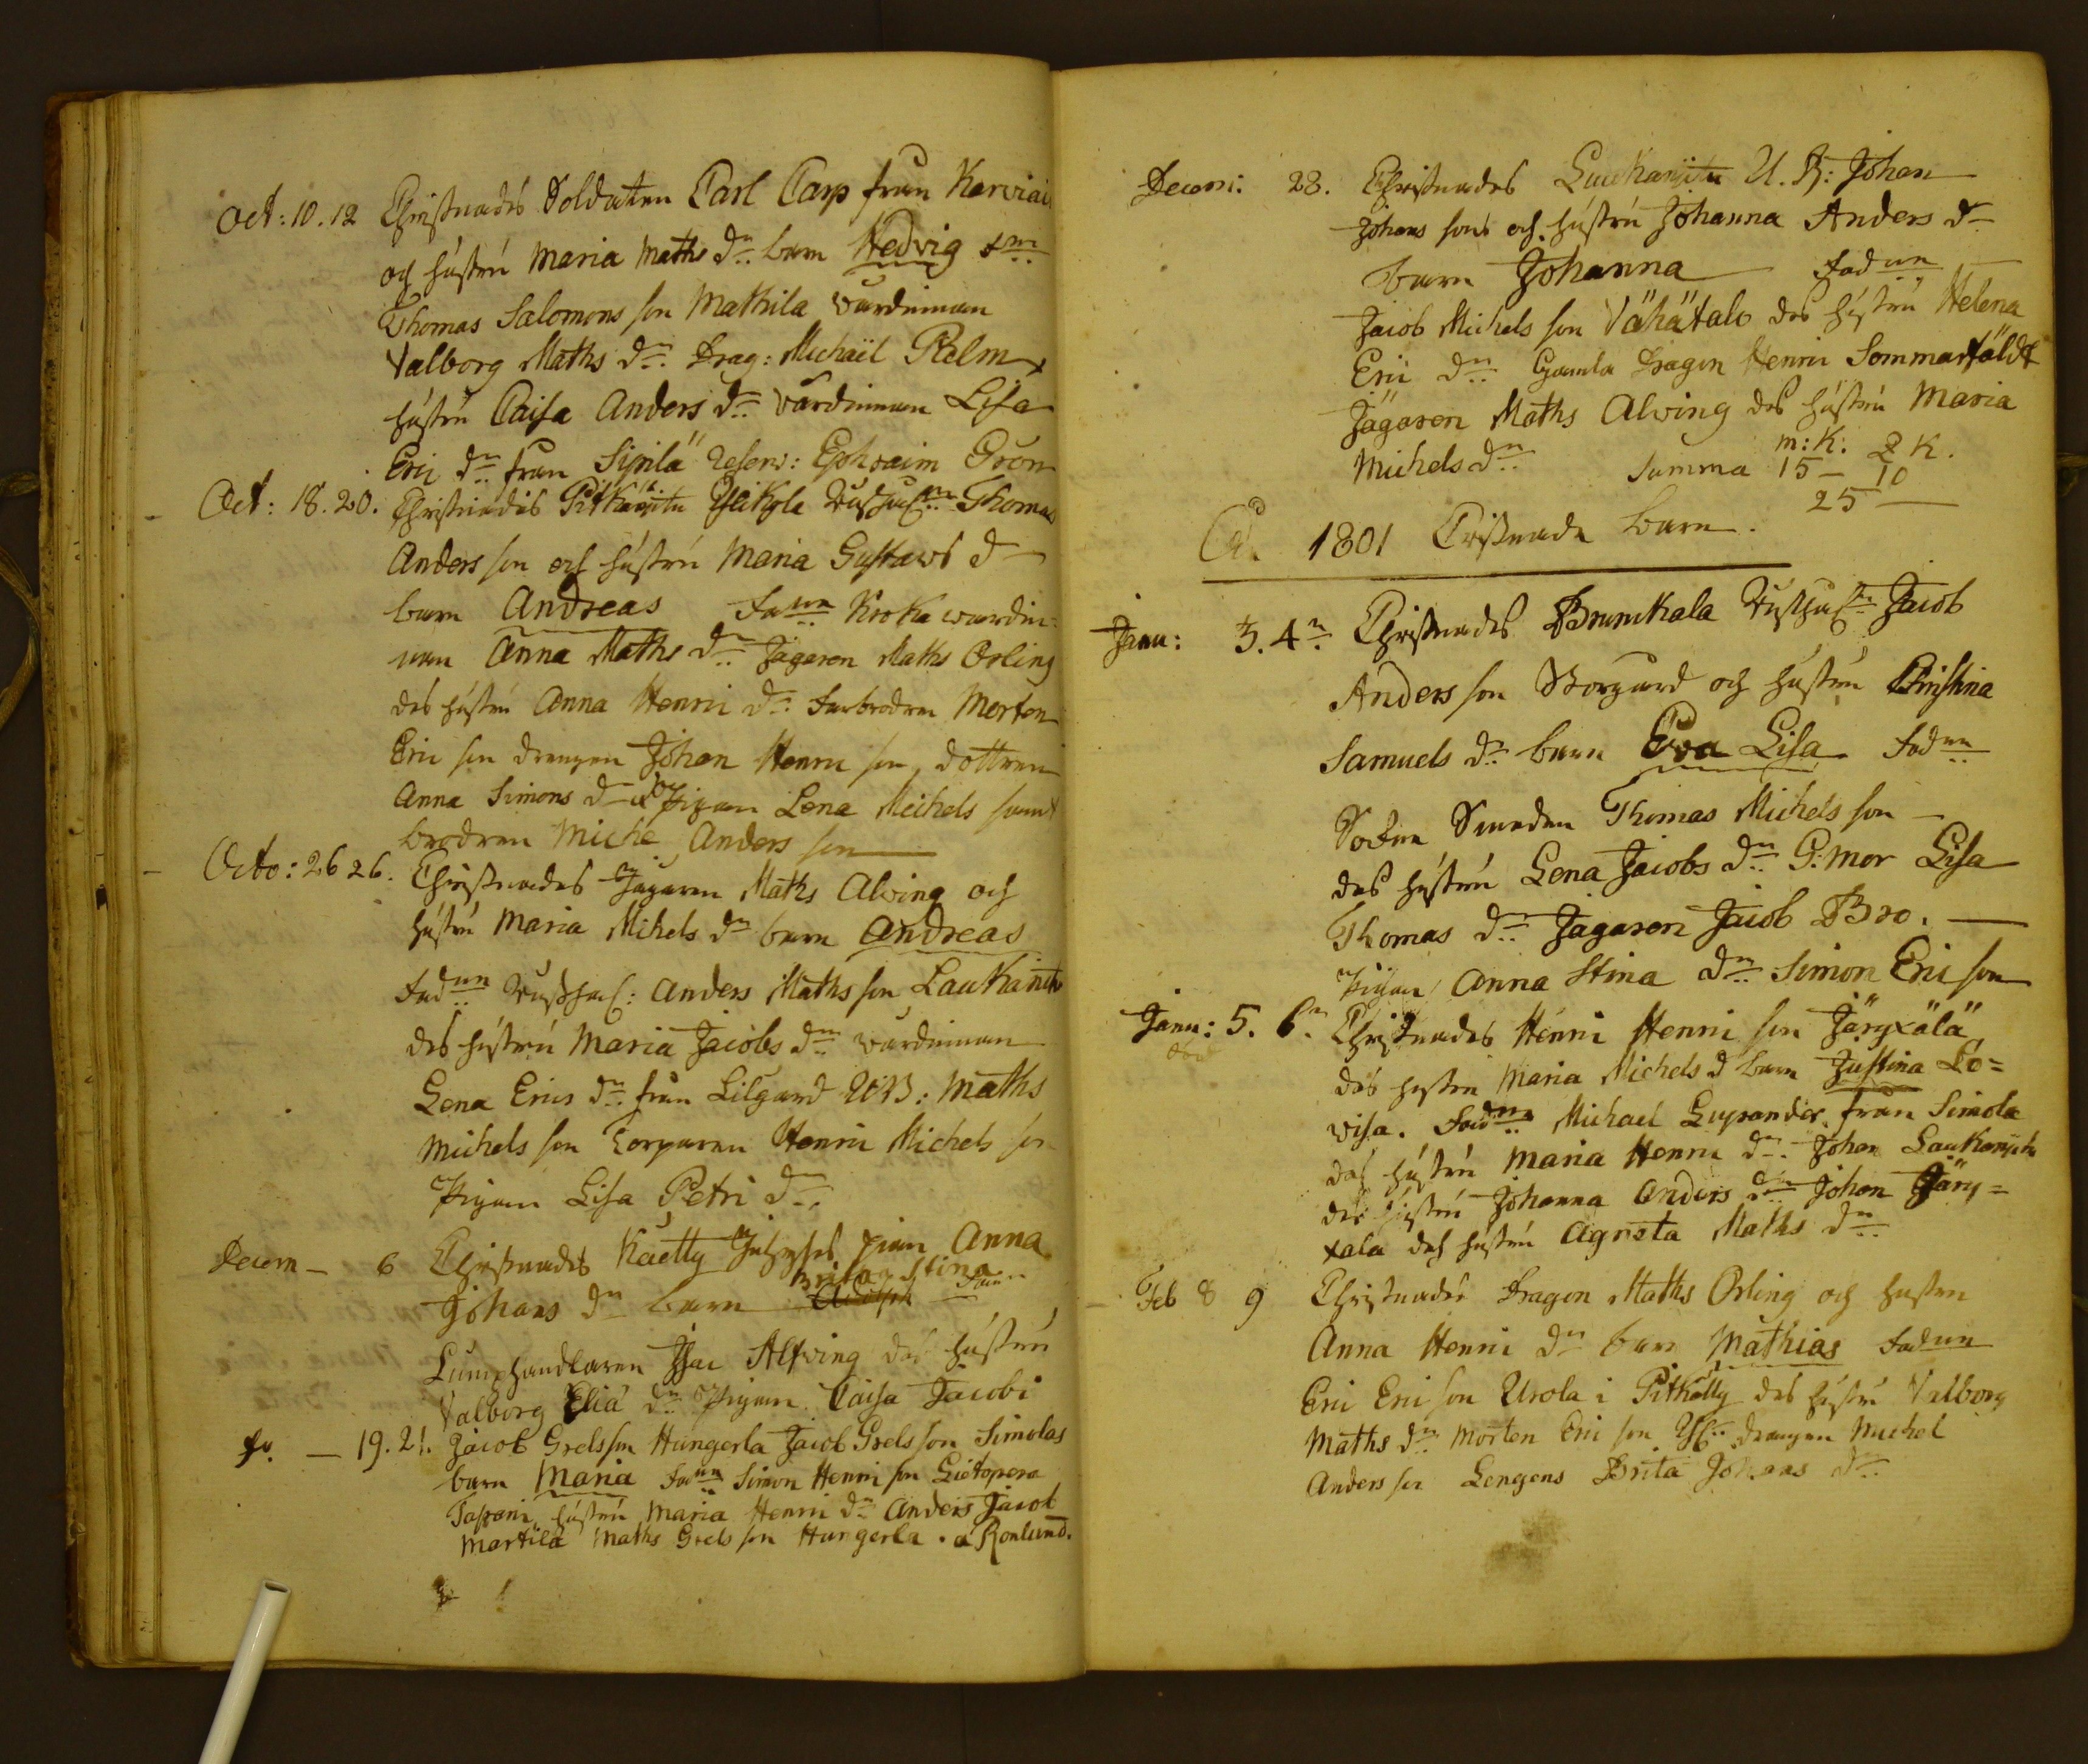 Oct: 10. 12 Christnades Soldaten Carl Carp från Karviai
och hustru Maria Maths dr barn Hedvig
Thomas Salomons son Mathila värdinnan
Valborg Maths dr Drag: Michaël Palm
hustru Caisa Anders dr värdinnan Lisa
Eric dr från Sipilä Reserv: Ephraim Gron
Oct: 18. 20. Christnades Pitkäpito Yli Kyla Thomas
Anders son och hustru Maria Gustavs d
barn Andreas Fadd Kroka wardin=
nan Anna Maths dr Jägaren Maths Orling
des hustru Anna Henric dr farbrodren Morten
Eric son drengen Johan Henric son, dottren
Anna Simons d pigan Lena Michels samt
brodren Miche Anders son
Octo: 26 26. Christnades Jägaren Maths Alving och
hustru Maria Mihels dr barn Andreas
Fadd Rusth: Anders Maths son Laukanito
des hustru Maria Jacobs dr värdinnan
Lena Erics dr från Lilgard Maths
Michels son Torparen Henric Michels son
Pigan Lisa Petri dr
Decem - 6 Christnades Kaetty pian Anna
Johans dr barn Brita Stina
Lumphandlaren Isac Alfving des hustru
Valborg Elia dr Pigan Caisa Jacobs
19. 21. Jacob Grels son Hungerla Jacob Grels son Simolas
barn Maria Fadd Simon Henric son
Tapani hustru Maria Henric dr Anders Jacob
Martila Maths Grels son Hungerla . a Ronlund.
Decem: 28. Christnades Laukanito U. B: Johan
Johans sons och hustru Johanna Anders d
barn Johanna Fad
Jacob Michels son Vähätalo des hustru Helena
Eric dr Gamla Dragon Henric Sommarfäldt
Jägaren Maths Alving des hustru Maria
Michels dr m: K: Q K.
Summa 15 - 10
25
1801 Cristnade Barn.
Janu: 3. 4 Christnades Brunkala Jacob
Anders son Borgard och hustru Christina
Samuels dr barn Eva Lisa Fadd
Socken Smeden Thomas Michels son
des hustru Lena Jacobs dr G: Mor Lisa
Thomas dr Jägaren Jacob Bro.
Pigan Anna Stina dr Simon Eric son
Janu: 5. 6 Christnades Henric Henric son
des hustru Maria Michels d barn Justina Lo=
visa. Fadd Michael från Simola
des hustru Maria Henric dr Johan Laukanito
des hustru Johanna Anders dr Johan Järy=
xala des hustru Agneta Maths dr
Feb 8 9 Christnades Dragon Maths Orling och hustru
Anna Henric dr barn Mathias Fadd
Eric Eric son Urola i Pitkälty des hustru Valborg
Maths dr Morten Eric son drengen Michel
Anders son Lengens Brita Johans dr